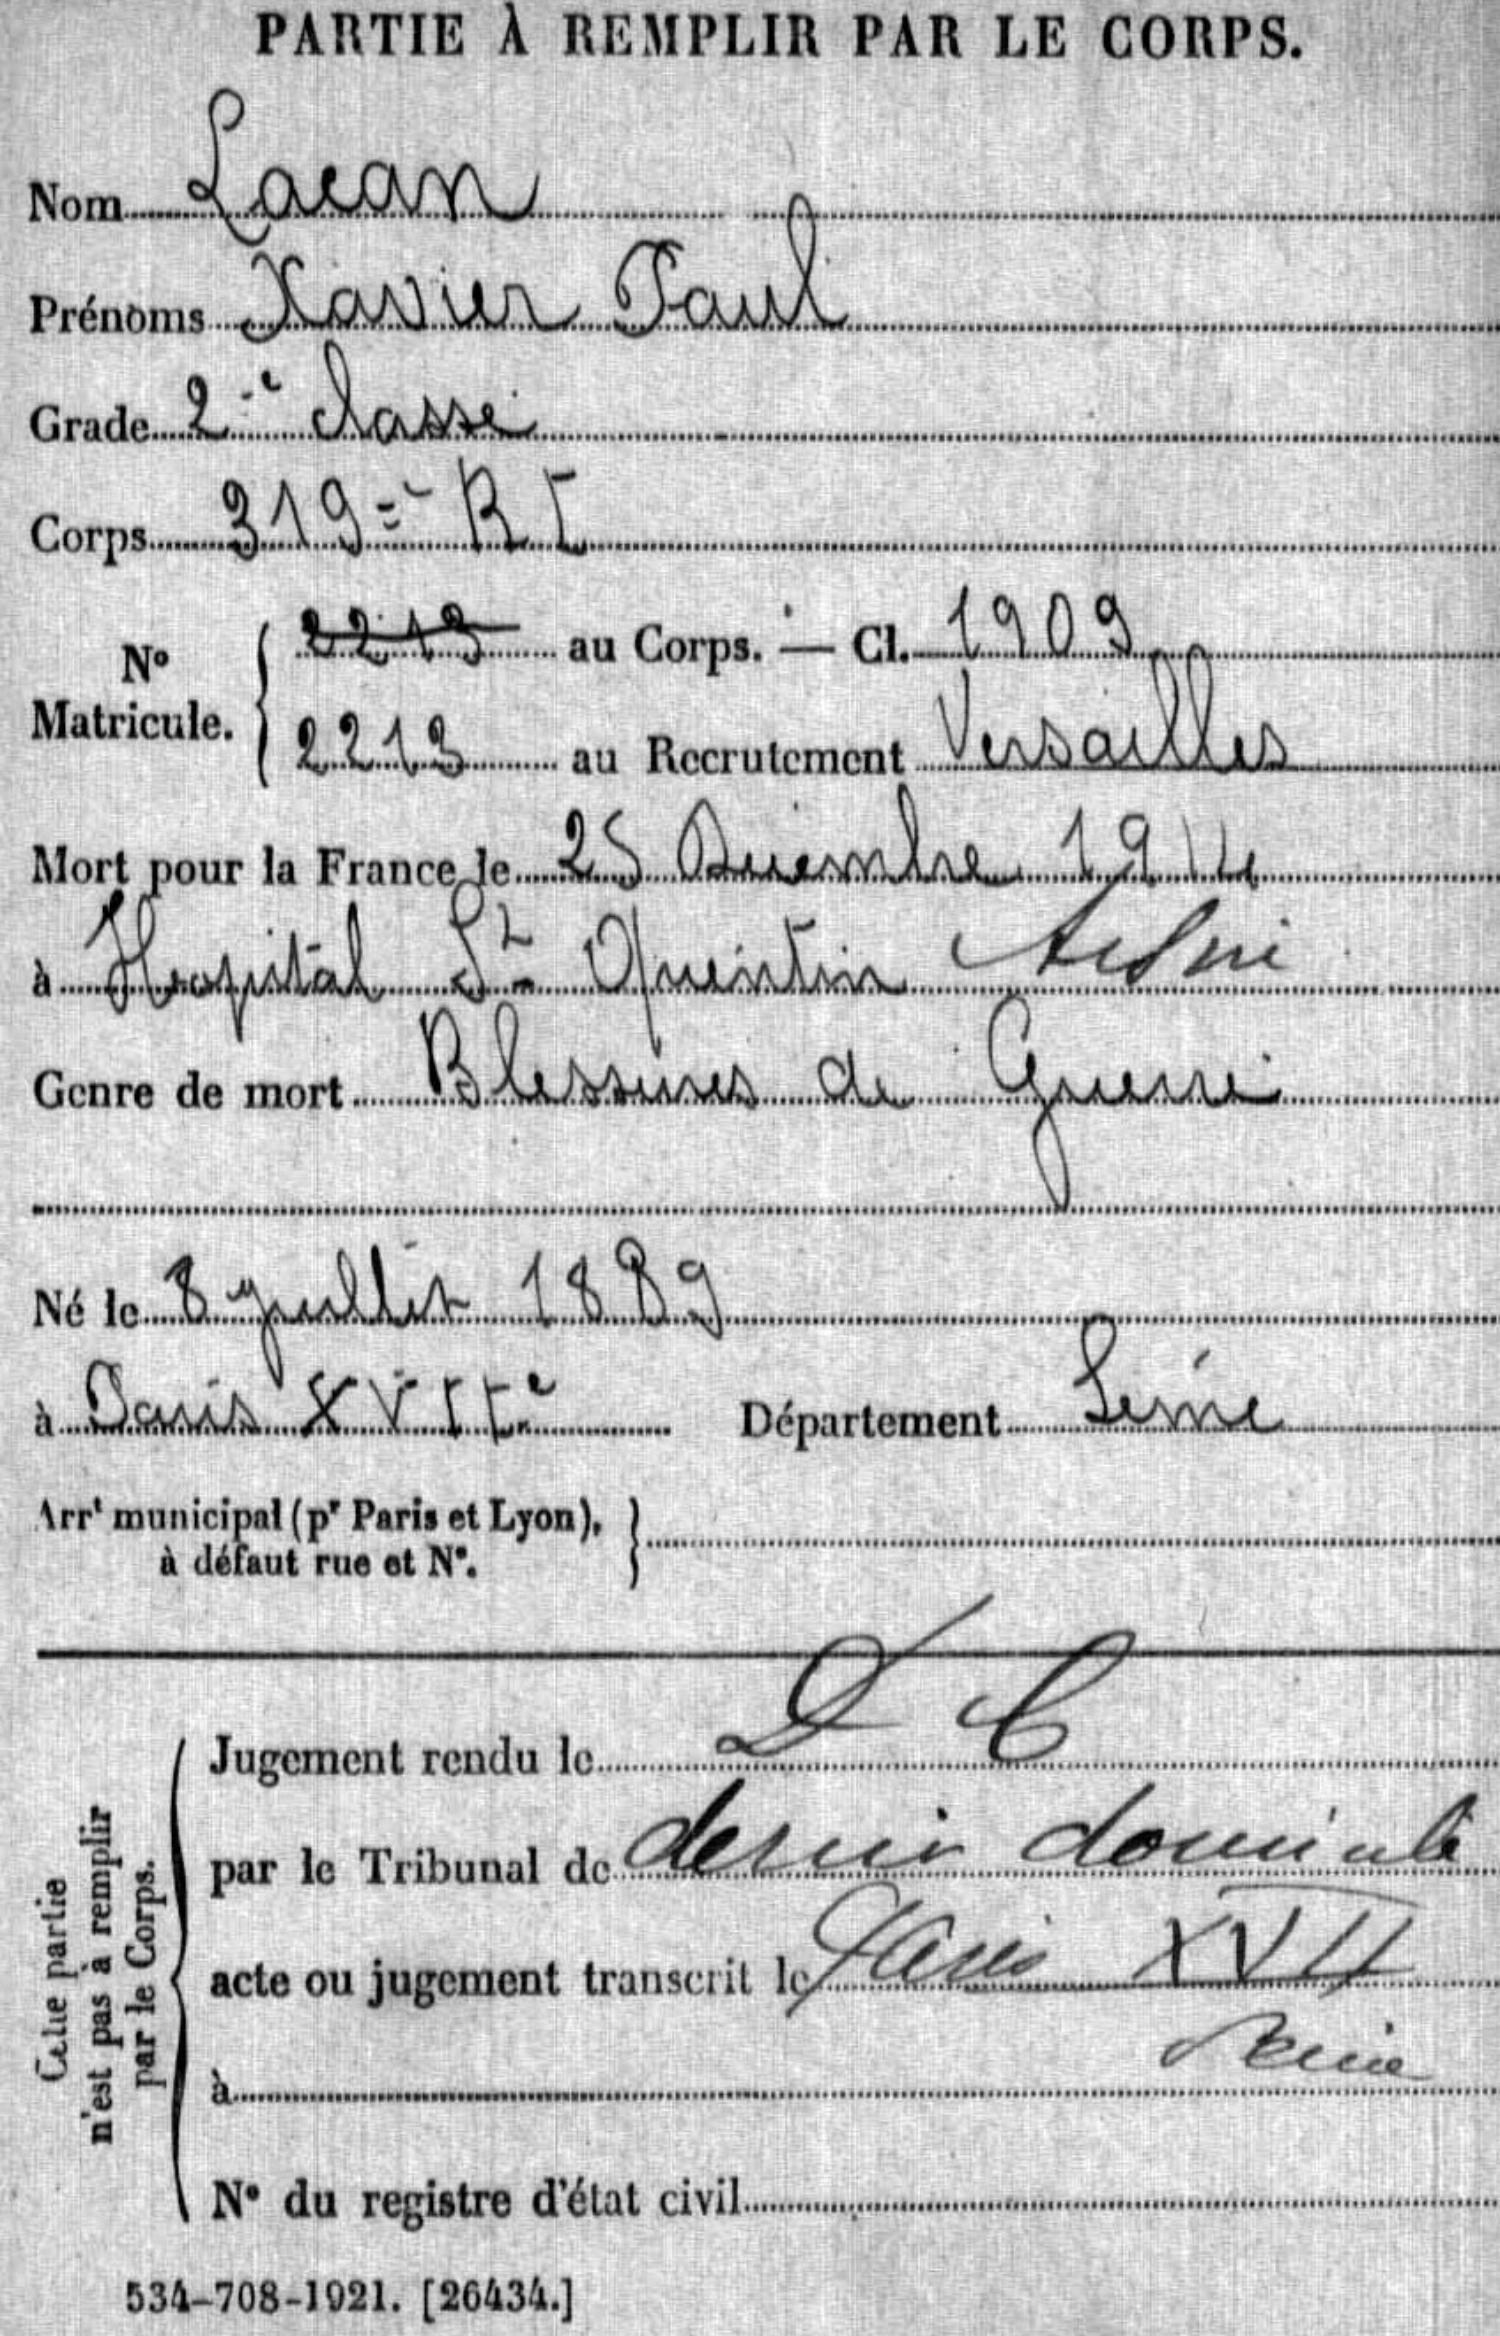 PARTIE À REMPLIR PAR LE CORPS.
Nom Lacan
Prénoms Xavier Paul
Grade 2e classe
Corps 319e R I
No Matricule. { 2213 au Corps. — Cl. 1909
2213 au Recrutement Versailles
Mort pour la France le 25 Décembre 1914
à Hopital St Quentin Aisne
Genre de mort Blessures de Guerre
Né le 8 Juillet 1889
à Paris XVIIe Département Seine
Arrt municipal (pr Paris et Lyon),
à défaut rue et No. }
Cette partie n'est pas à remplir par le Corps.
Jugement rendu le D C
par le Tribunal de dernier domicile
acte ou jugement transcrit le Paris XVII
Seine
à
No du registre d'état civil
534-708-1921. [26434.]